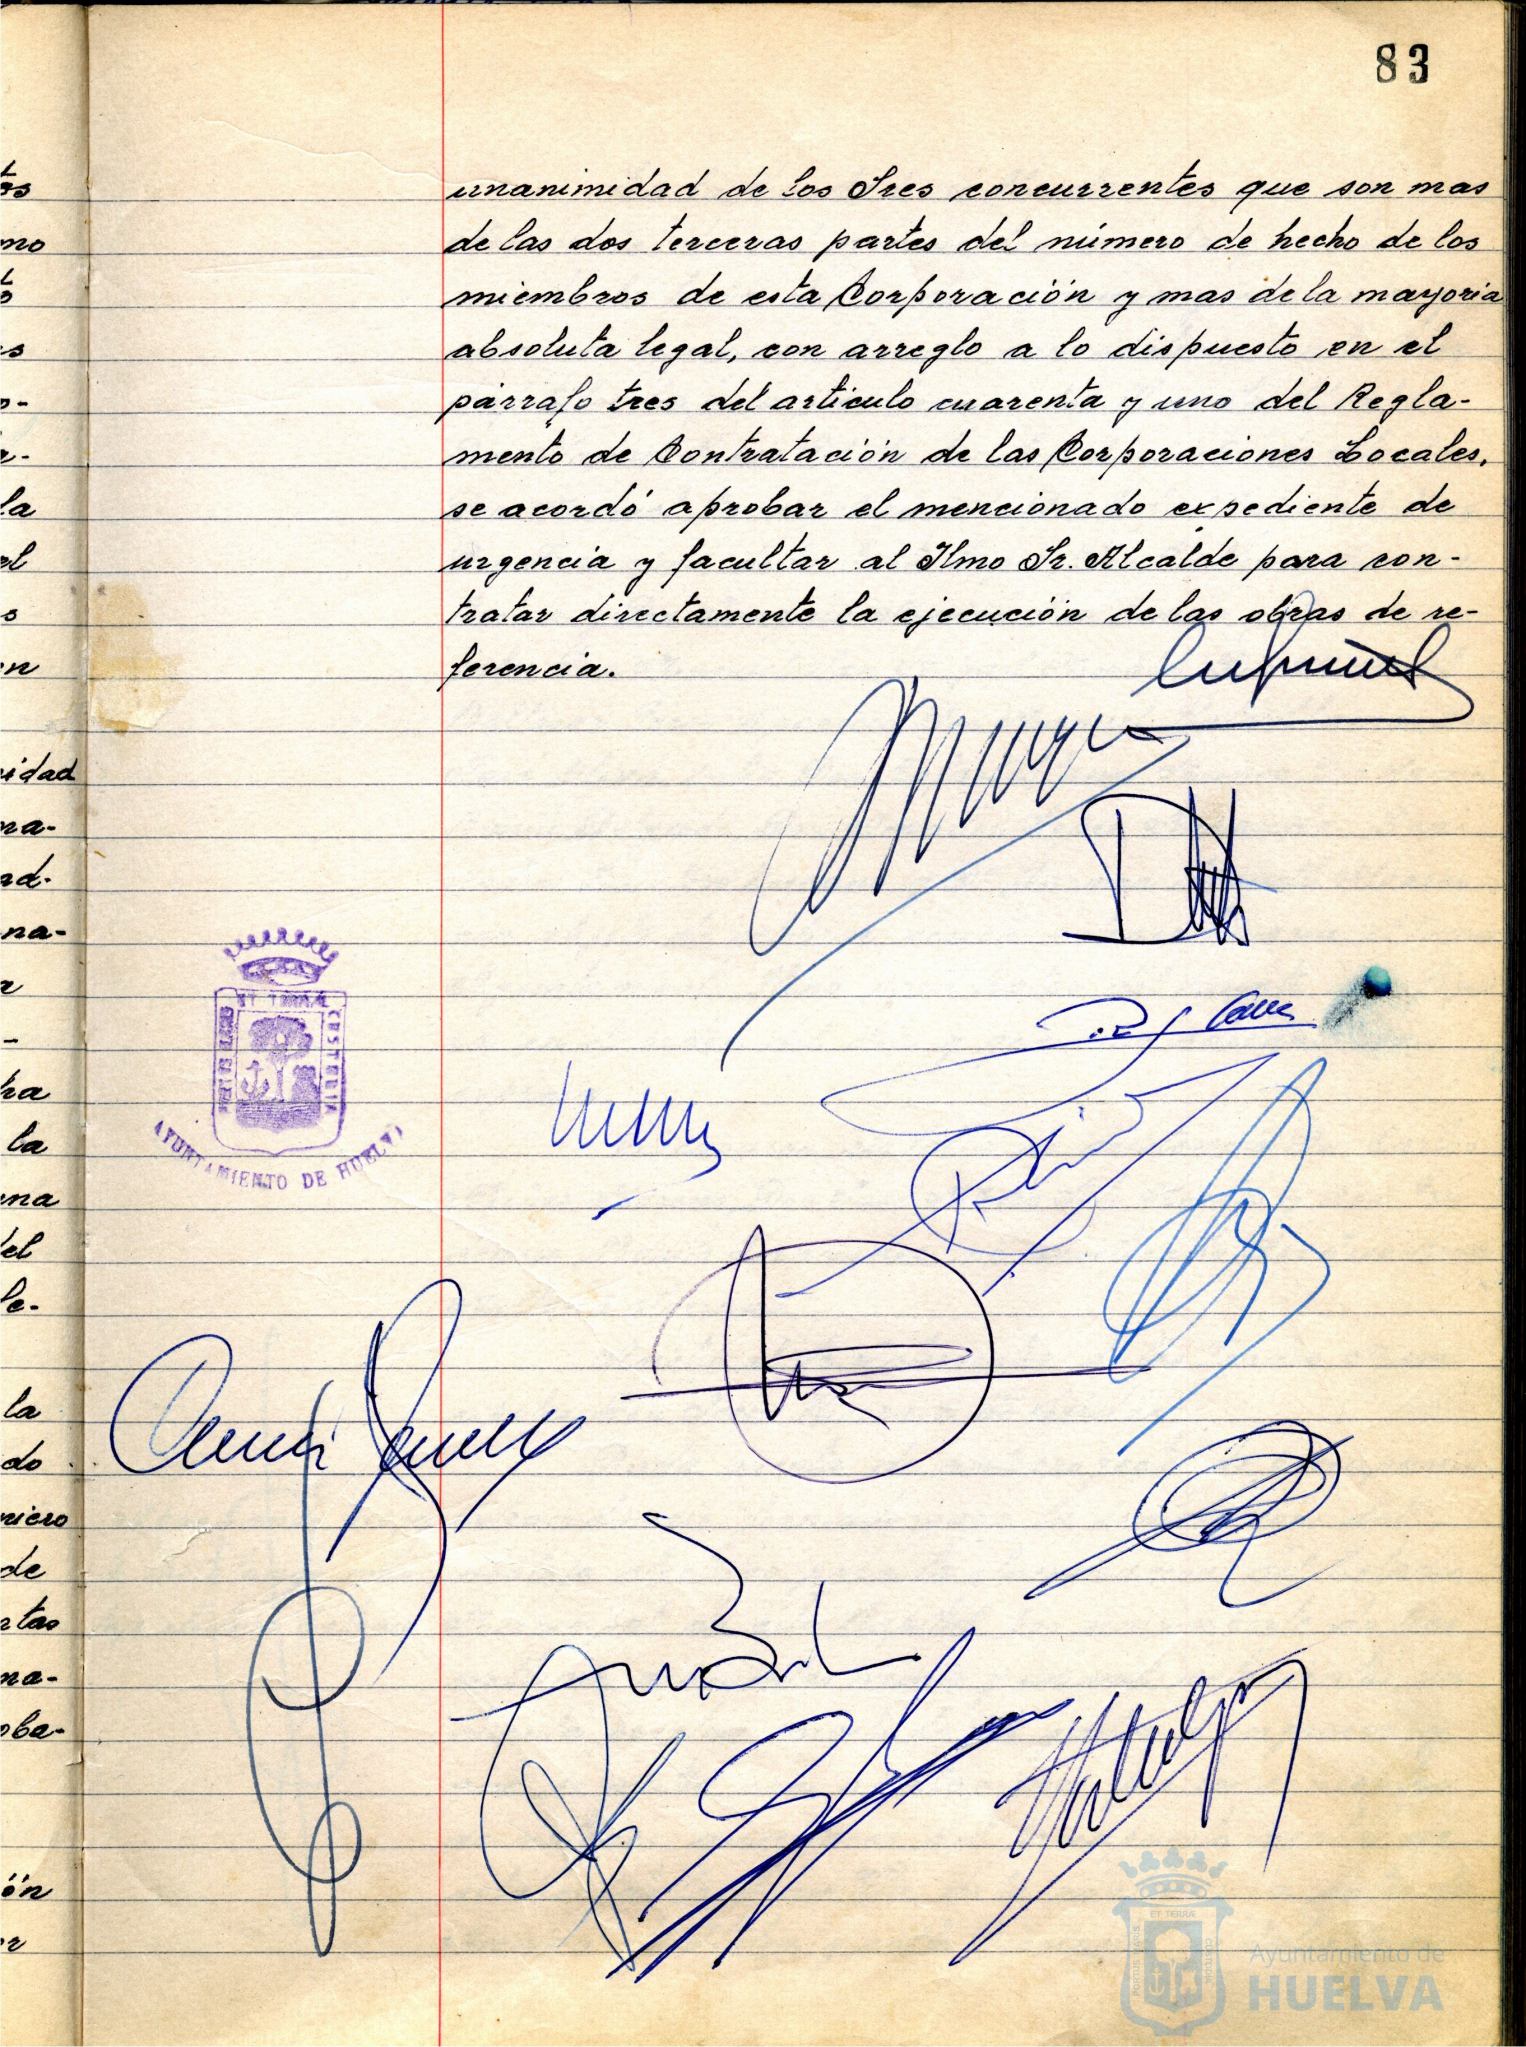 83
unanimidad de los Sres concurrentes que son mas
de las dos terceras partes del número de hecho de los
miembros de esta Corporación y mas de la mayoria
absoluta legal, con arreglo a lo dispuesto en el
párrafo tres del articulo cuarenta y uno del Regla-
mento de Contratación de las Corporaciones Locales,
se acordó aprobar el mencionado expediente de
urgencia y facultar al Ilmo Sr. Alcalde para con-
tratar directamente la ejecución de las obras de re-
ferencia.
mo
la
idad
na-
la
na
del
la
do
niero
de
tas
na-
oba-
ón
ET TERRÆ CUSTODIA
AYUNTAMIENTO DE HUELVA
ET TERRÆ
Ayuntamiento de
HUELVA